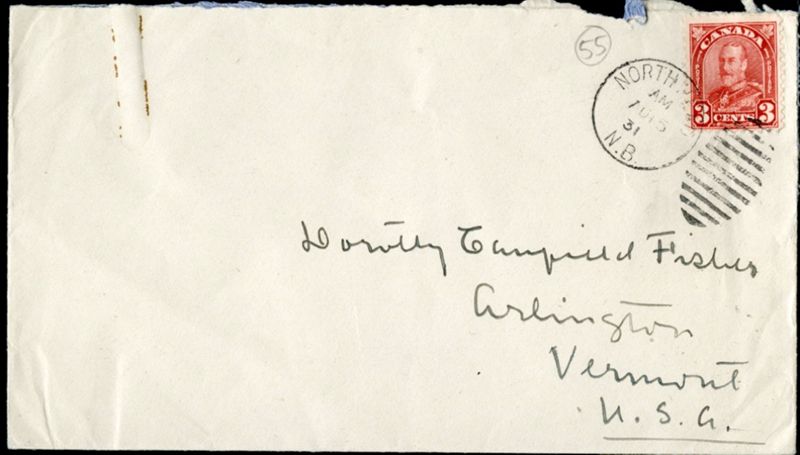 55
CANADA
3 CENTS 3
NORTH
AM
AU 5
31
N.B.
Dorothy Canfield Fisher
Arlington
Vermont
U.S.A.